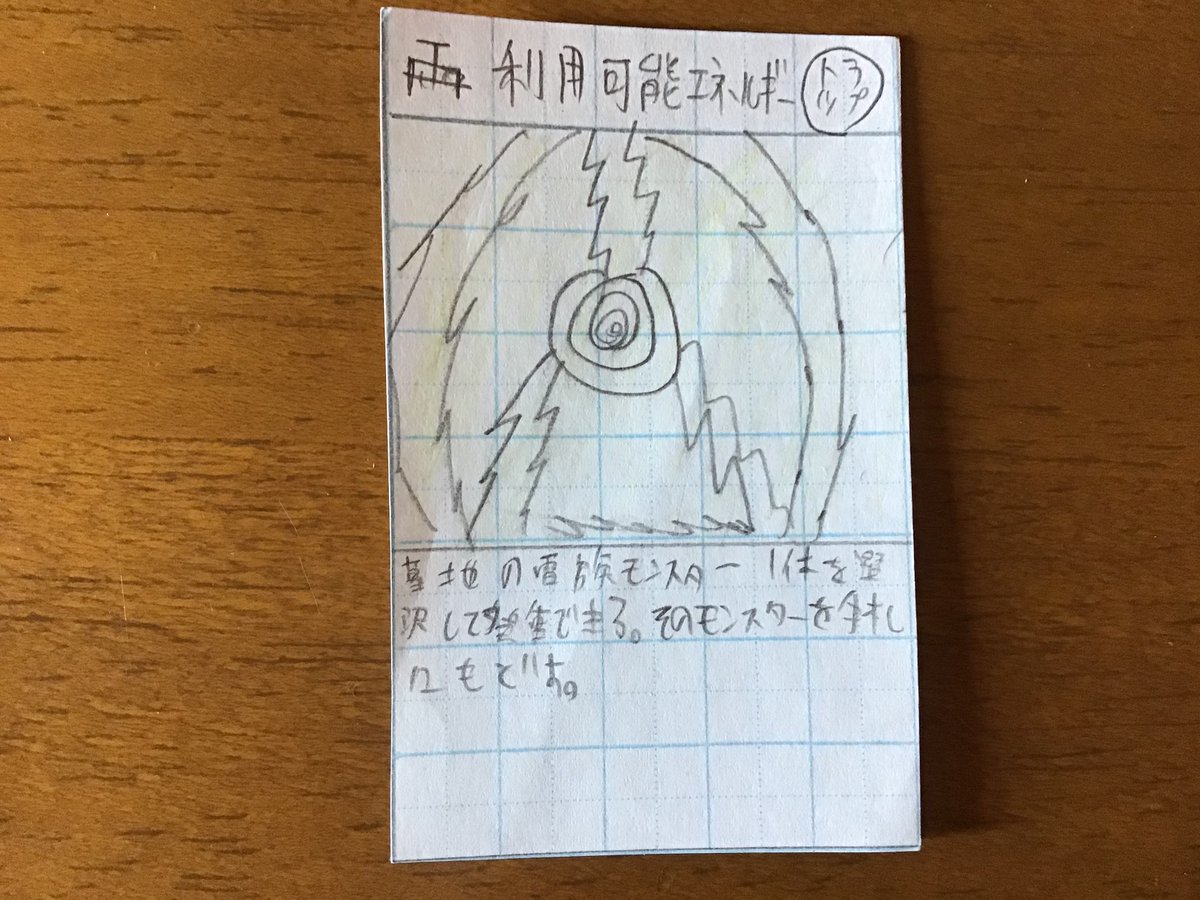 再利用可能エネルギー トラップ
墓地の雷族モンスター1体を選
択して発動できる。そのモンスターを手札
にもどす。